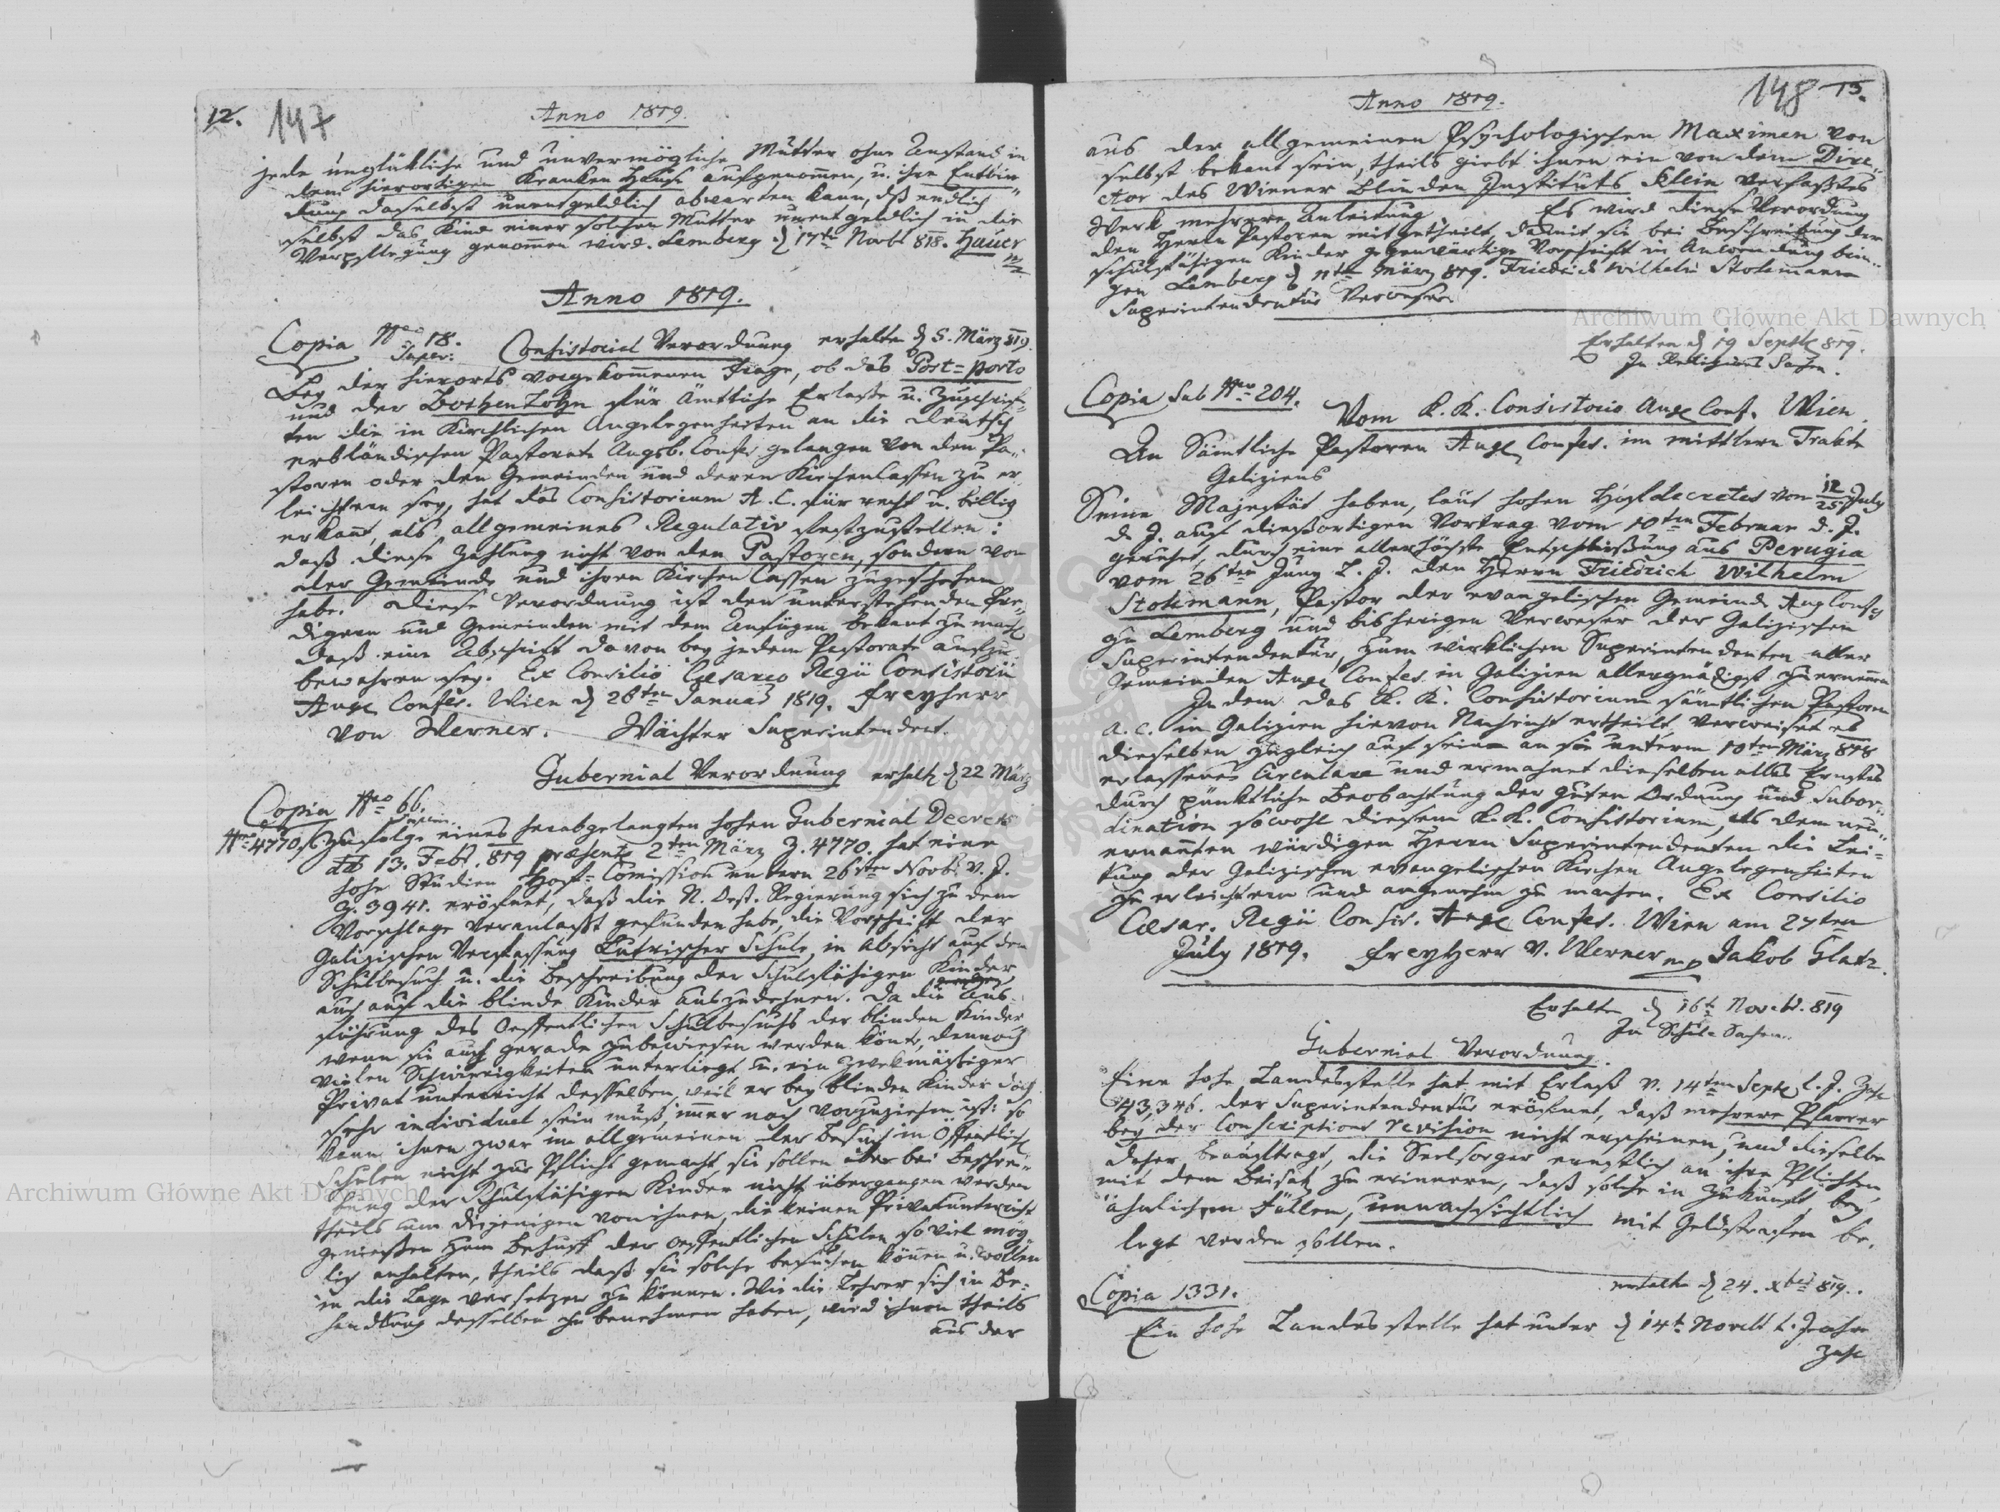 12. 147
Anno 1819.
jede unglükliche und unvermögliche Mutter ohne Anstand in
dem hierortigen Kranken Hause aufgenommen, u. ihre Entbin-
dung daselbst unentgeldlich abwarten kann, dß endlich
selbst das Kind einer solchen Mutter unentgeldlich in die
Verpflegung genommen wird. Lemberg d 17te Novbr 818. Hauer
Anno 1819.
Copia Nro 18. Consistorial Verordnung erhalten d 5. März 819.
Super:
Bey der hierorts vorgekommenen Frage, ob das Post=porto
und der Bothenlohn für Ämtliche Erlasse u. Zuschrif-
ten die in Kirchlichen Angelegenheiten an die deutsch
erbländischen Pastorate Augsb. Confes. gelangen von den Pa-
storen oder den Gemeinden und deren Kirchenkassen zu er-
leichtern sey, hat das Consistorium A. C. für recht u. billig
erkant, als allgemeines Regulativ festzustellen:
daß diese Zahlung nicht von den Pastoren, sondern von
der Gemeinde und ihren Kirchen Cassen zugeschehen
habe. Diese Verordnung ist den unterstehenden Pre-
digern und Gemeinden mit dem Anfügen bekant zu mach
daß eine Abschrift davon bey jedem Pastorate aufzu
bewahren sey. Ex Consilio Cæsareo Regii Consistorii
Augs Confes. Wien d 28ten Januar 1819. Freyherr
von Werner. Wächter Superintendent.
Gubernial Verordnung erhalt d 22 März
Copia Nro 66.
Nro 4770 Zufolge eines herabgelangten hohen Gubernial Decrets
dtto 13. Febr. 819 præsent 2ten März Z. 4770. hat eine
hohe Studien Hof=Comission untern 26ten Novbr v. J.
Z. 3941. eröfnet, daß die N. Oest. Regierung sich zu dem
Vorschlage veranlaßt gefunden habe, die Vorschrift der
Galizischen Verfassung Lutrischer Schule, in Absicht auf den
Schulbesuch u. die Beschreibung der Schulfähigen Kinder
auch auf die blinde Kinder auszudehnen. Da die Aus-
führung des Oeffentlichen Schulbesuchs der blinden Kinder
wenn sie auch gerade zu bewiesen werden könte, dennoch
vielen Schwierigkeiten unterliegt u. ein zwekmässiger
Privat unterricht desselben, weil er bey blinden Kinder doch
sehr individuel sein muß, imer noch vorzuziehen ist: so
kann ihnen zwar im allgemeinen der Besuch in Öffentlich
Schulen nicht zur Pflicht gemacht, sie sollen aber bei Beschrei-
bung der Schulfähigen Kinder nicht übergangen werden
theils um diejenigen von ihnen, die keinen Privatunterricht
geniessen zum Behuff der oeffentlichen Schulen so viel mög-
lich anhalten, theils daß sie solche besuchen können u. wollen
in die Lage versetzen zu können. Wie die Lehrer sich in Be-
handlung desselben zu benehmen haben, wird ihnen theils
aus der
148 13.
Anno 1819.
aus der allgemeinen Psychologischen Maximen von
selbst bekant sein, theils giebt ihnen ein von dem Dire-
ctor des Wiener Blinden Instituts Klein verfaßtes
Werk mehrere Anleitung. Es wird diese Verordnung
den Herrn Pastoren mitgetheilt, damit sie bei Beschreibung der
schulfähigen Kinder gegenwärtige Vorschrift in Anwendung brin-
gen Lemberg d 11ten März 819. Friedrich Wilhelm Stokmann
Superintendentur Verweser.
Erhalten d 19 Septbr 819.
In Religions Sachen.
Copia Sub Nro 204. Vom K. K. Consistorio Augs Conf. Wien
An Sämtliche Pastoren Augs Confes. im mittlern Trakte
Galiziens
Seine Majestät haben, laut hohen Hofdecretes vom 12/25 July
d. J. auf dießortigen Vortrag vom 10ten Februar d. J.
geruhet, durch eine allerhöchste Entschließung aus Perugia
vom 26ten Juny l. J. den Herrn Friedrich Wilhelm
Stokmann, Pastor der evangelischen Gemeinde Aug Confes
zu Lemberg und bisherigen Verweser der Galizischen
Superintendentur, zum wirklichen Superintendenten aller
Gemeinden Augs Confes. in Galizien allergnädigst zu ernennen
Indem das K. K. Consistorium sämtlichen Pastoren
A. C. in Galizien hievon Nachricht ertheilt, verweiset es
dieselben zugleich auf seine an sie unterm 10ten März 818
erlassenes Circulare und ermahnet dieselben alles Ernstes
durch pünktliche Beobachtung der guten Ordnung und Subor-
dination sowohl diesem K. K. Consistorium, als dem neu-
ernannten würdigen Herrn Superintendenten die Lei-
tung der Galizischen evangelischen Kirchen Angelegenheiten
zu erleichtern und angenehm zu machen. Ex Consilio
Cæsar. Regii Consis. Augs Confes. Wien am 27ten
July 1819. Freyherr v. Werner mp Jakob Glatz.
Erhalten d 16t Novbr. 819
In Schul=Sachen.
Gubernial Verordnung.
Eine hohe Landesstelle hat mit Erlaß v. 14ten Septbr l. J. Zahl
43,346. der Superintendentur eröfnet, daß mehrere Pfarrer
bey der Conscriptions revision nicht erscheinen, und dieselbe
daher beauftragt, die Seelsorger ernstlich an ihre Pflichten
mit dem Beisatz zu erinnern, daß solche in Zukunft bey
ähnlichen Fällen, unnachsichtlich mit Geldstrafen be-
legt werden sollen.
Copia 1331. erhalten d 24. Xber 819.
Ein hohe Landesstelle hat unter d 14t Novbr l. Jahr
Zahl
Archiwum Główne Akt Dawnych
Archiwum Główne Akt Dawnych